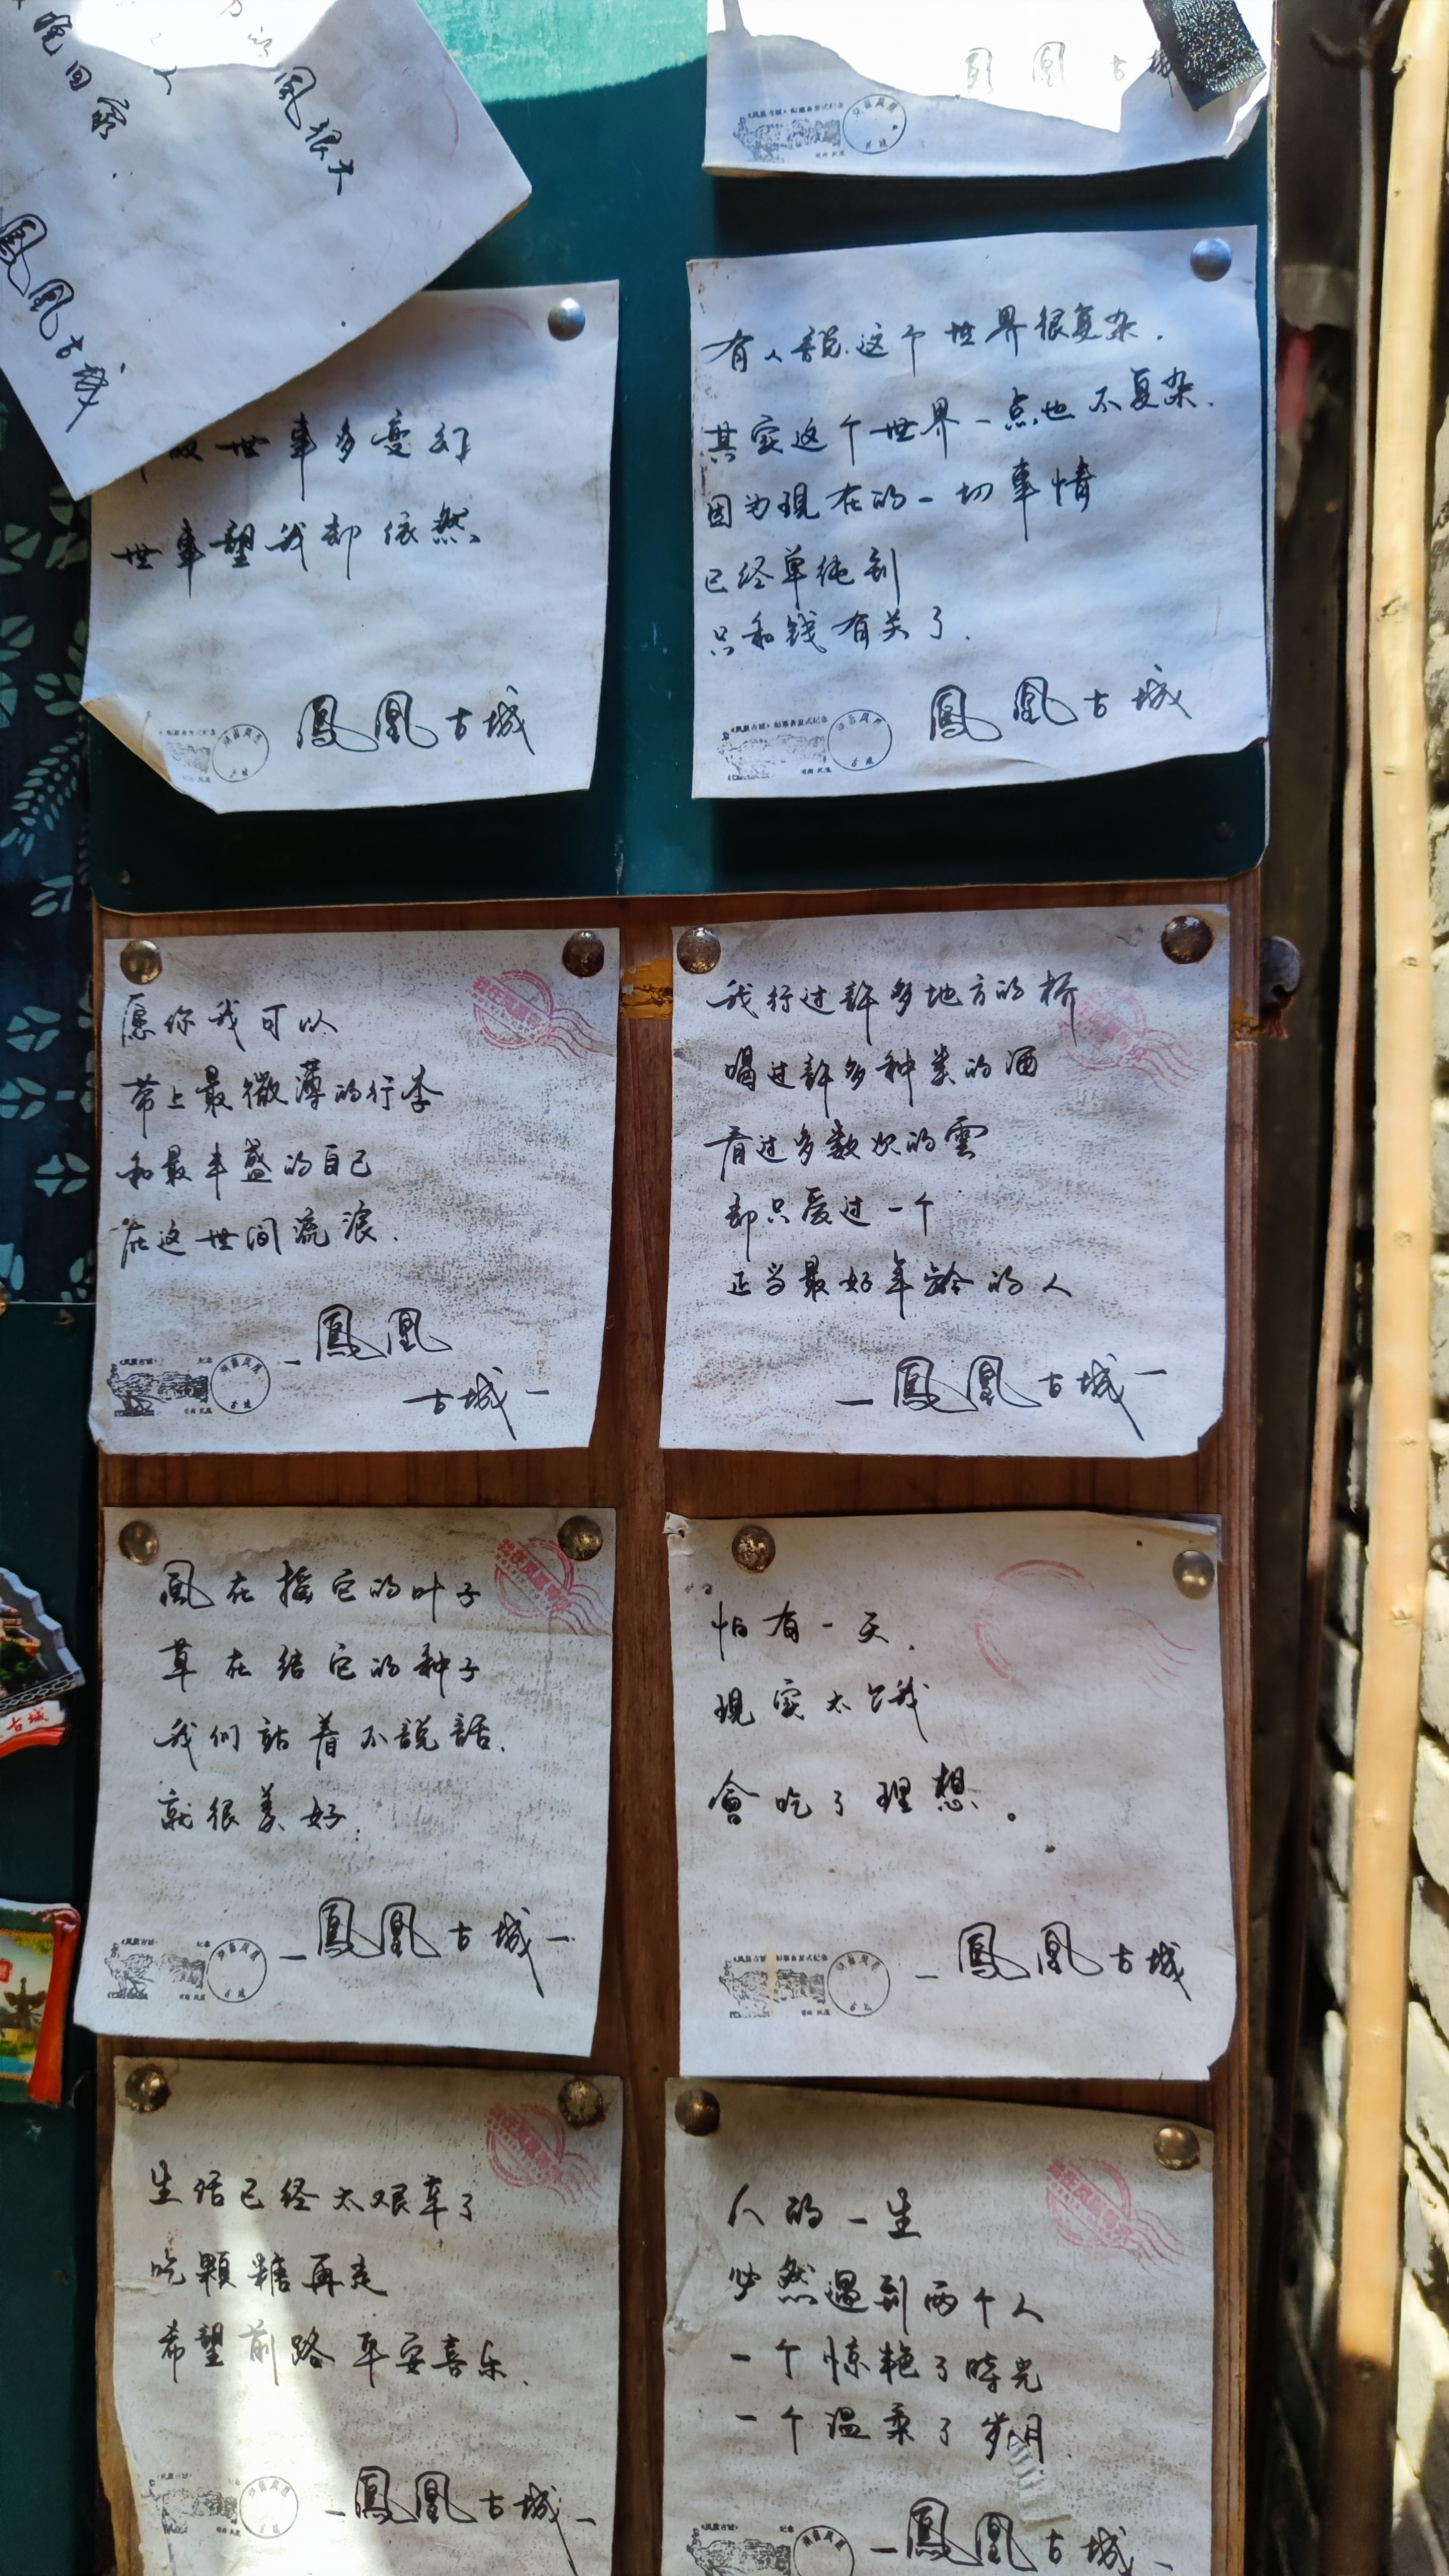 晚回家.
風很大
鳳凰古城
鳳凰古城
世事多变幻
世事望我却依然
鳳凰古城
有人說这个世界很复杂.
其实这个世界一点也不复杂.
因为現在的一切事情
已经单纯到
只和钱有关了.
鳳凰古城
愿你我可以
带上最微薄的行李
和最丰盛的自己
在这世间流浪.
鳳凰
古城
我行过許多地方的桥
喝过許多种类的酒
看过多数次的雲
却只爱过一个
正当最好年龄的人
鳳凰古城
風在摇它的叶子
草在结它的种子
我们站着不說話.
就很美好.
鳳凰古城
怕有一天.
現实太饿
會吃了理想。
鳳凰古城
生活已经太艰辛了
吃顆糖再走
希望前路平安喜乐.
鳳凰古城
人的一生
必然遇到两个人
一个惊艳了時光
一个温柔了岁月.
鳳凰古城
古城